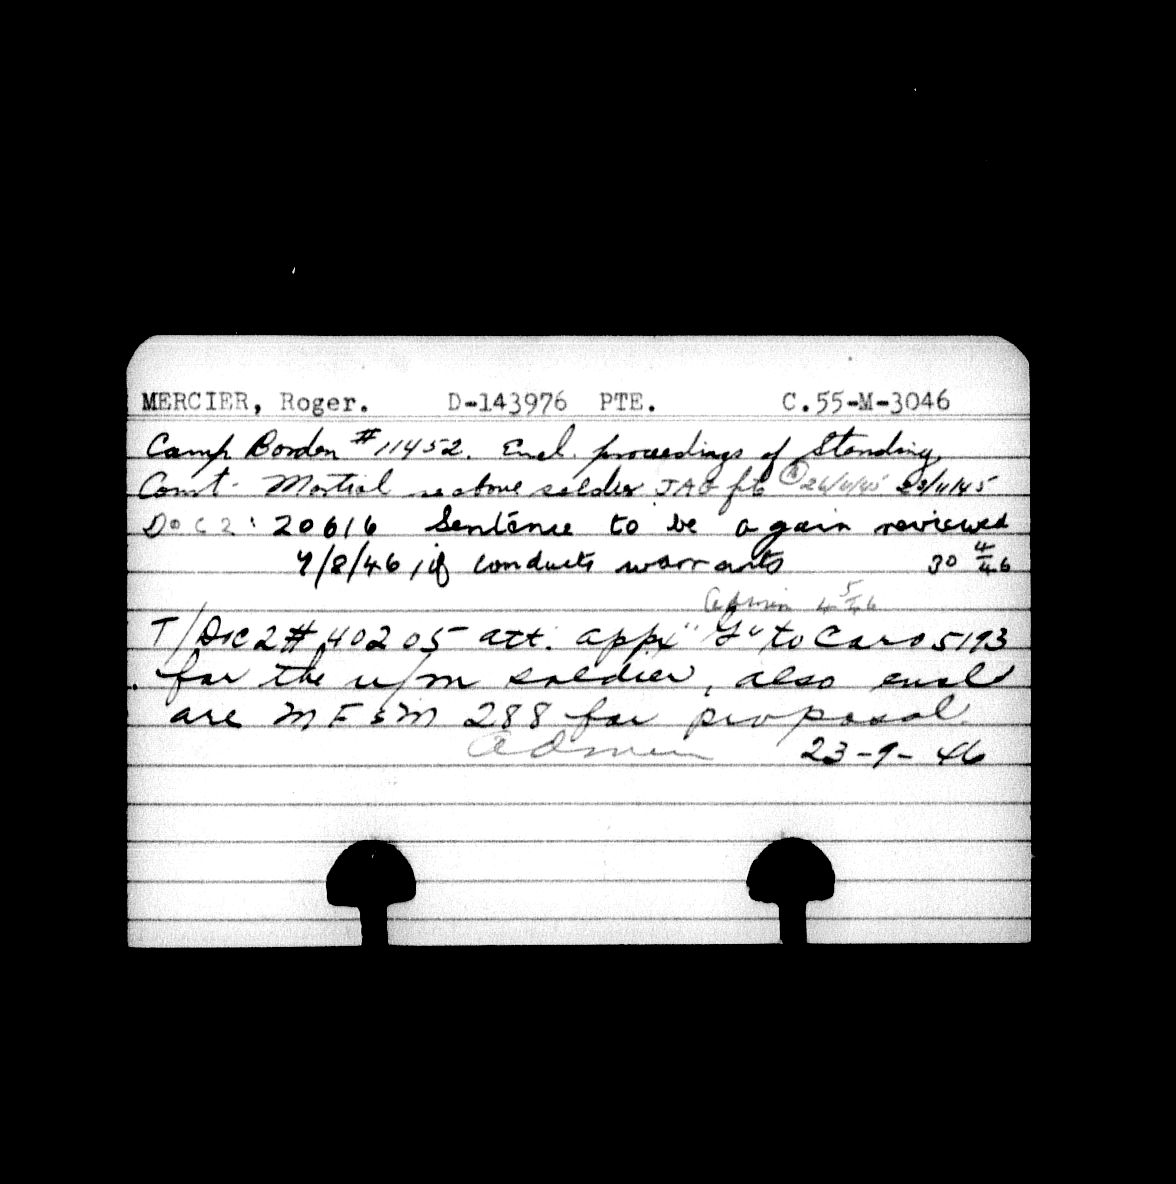 MERCIER, Roger. D-143976 PTE. C.55-M-3046
Camp Borden #11452. Encl. proceedings of Standing
Court-Martial re above soldier JAG fts 26/11/45 28/11/45
DOC 2: 20616 Sentence to be again reviewed
7/8/46, if conducts warrants 30 4/46
Admin 4 5/46
T/Doc 2 # 40205 att. appx "G" to Caro 5193
for the u/m soldier, also encl
are M F & M 288 for proposal.
Admin 23-9-46